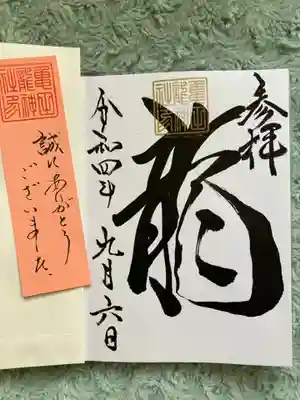 参拝
龍
令和四年 九月六日
亀山
龍神
社印
亀山
龍神
社印
誠にありがとう
ございました。